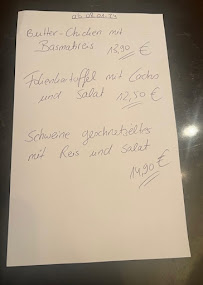 Butter-Chicken mit
Basmatireis 13,90 €
Folienkartoffel mit Lachs
und Salat 12,50 €
Schweine geschnetzeltes
mit Reis und Salat
14,90 €